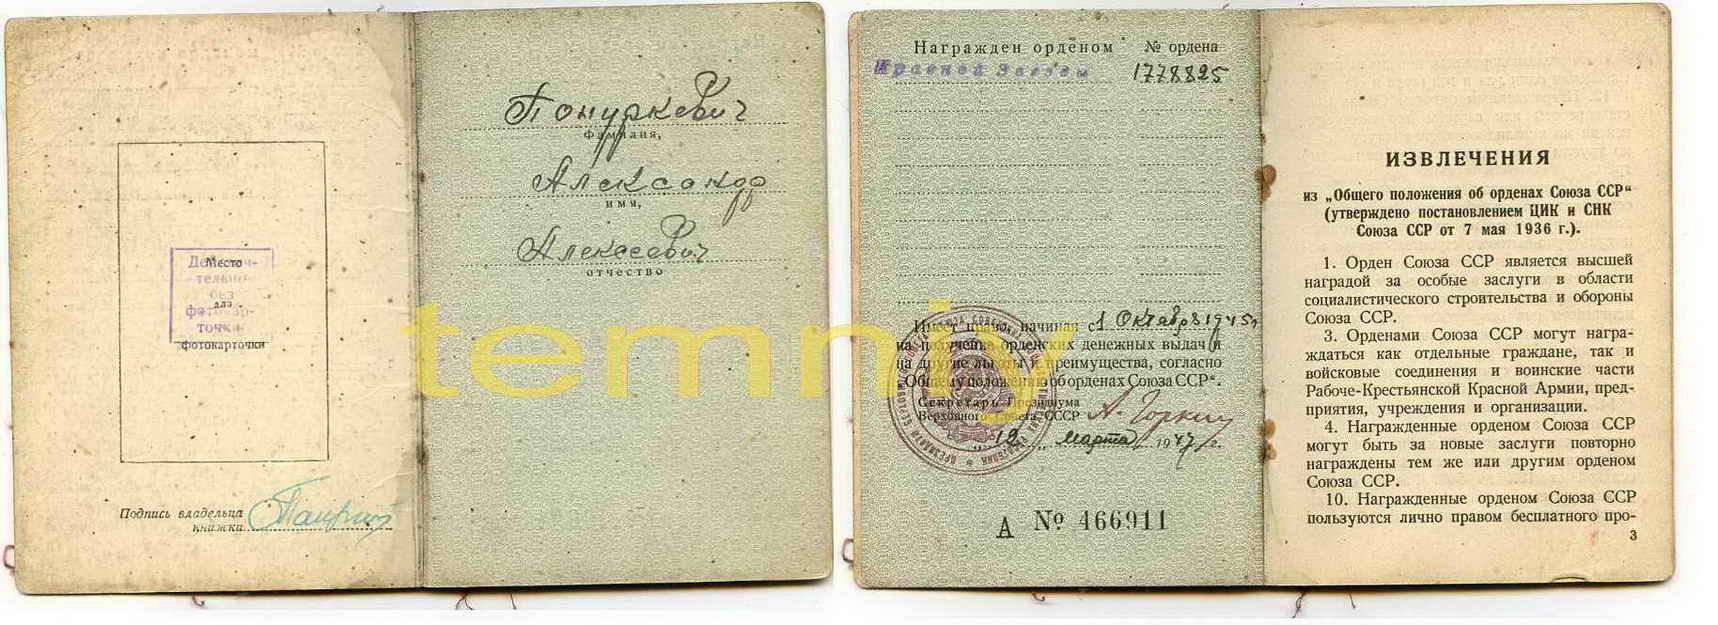 Действи-
тельно
без
фотокар-
точки
Место
для
фотокарточки
Подпись владельца
книжки
Понуркевич
фамилия,
Александр
имя,
Алексеевич
отчество
Награжден орденом № ордена
Красной Звезды 1778825
Имеет право, начиная с 1 Октября 1945г
на получение орденских денежных выдач и
на другие льготы и преимущества, согласно
„Общему положению об орденах Союза ССР“.
Секретарь Президиума
Верховного Совета СССР А. Горкин
12 марта 1947 г.
А № 466911
ИЗВЛЕЧЕНИЯ
из „Общего положения об орденах Союза ССР“
(утверждено постановлением ЦИК и СНК
Союза ССР от 7 мая 1936 г.).
1. Орден Союза ССР является высшей
наградой за особые заслуги в области
социалистического строительства и обороны
Союза ССР.
3. Орденами Союза ССР могут награ-
ждаться как отдельные граждане, так и
войсковые соединения и воинские части
Рабоче-Крестьянской Красной Армии, пред-
приятия, учреждения и организации.
4. Награжденные орденом Союза ССР
могут быть за новые заслуги повторно
награждены тем же или другим орденом
Союза ССР.
10. Награжденные орденом Союза ССР
пользуются лично правом бесплатного про-
3